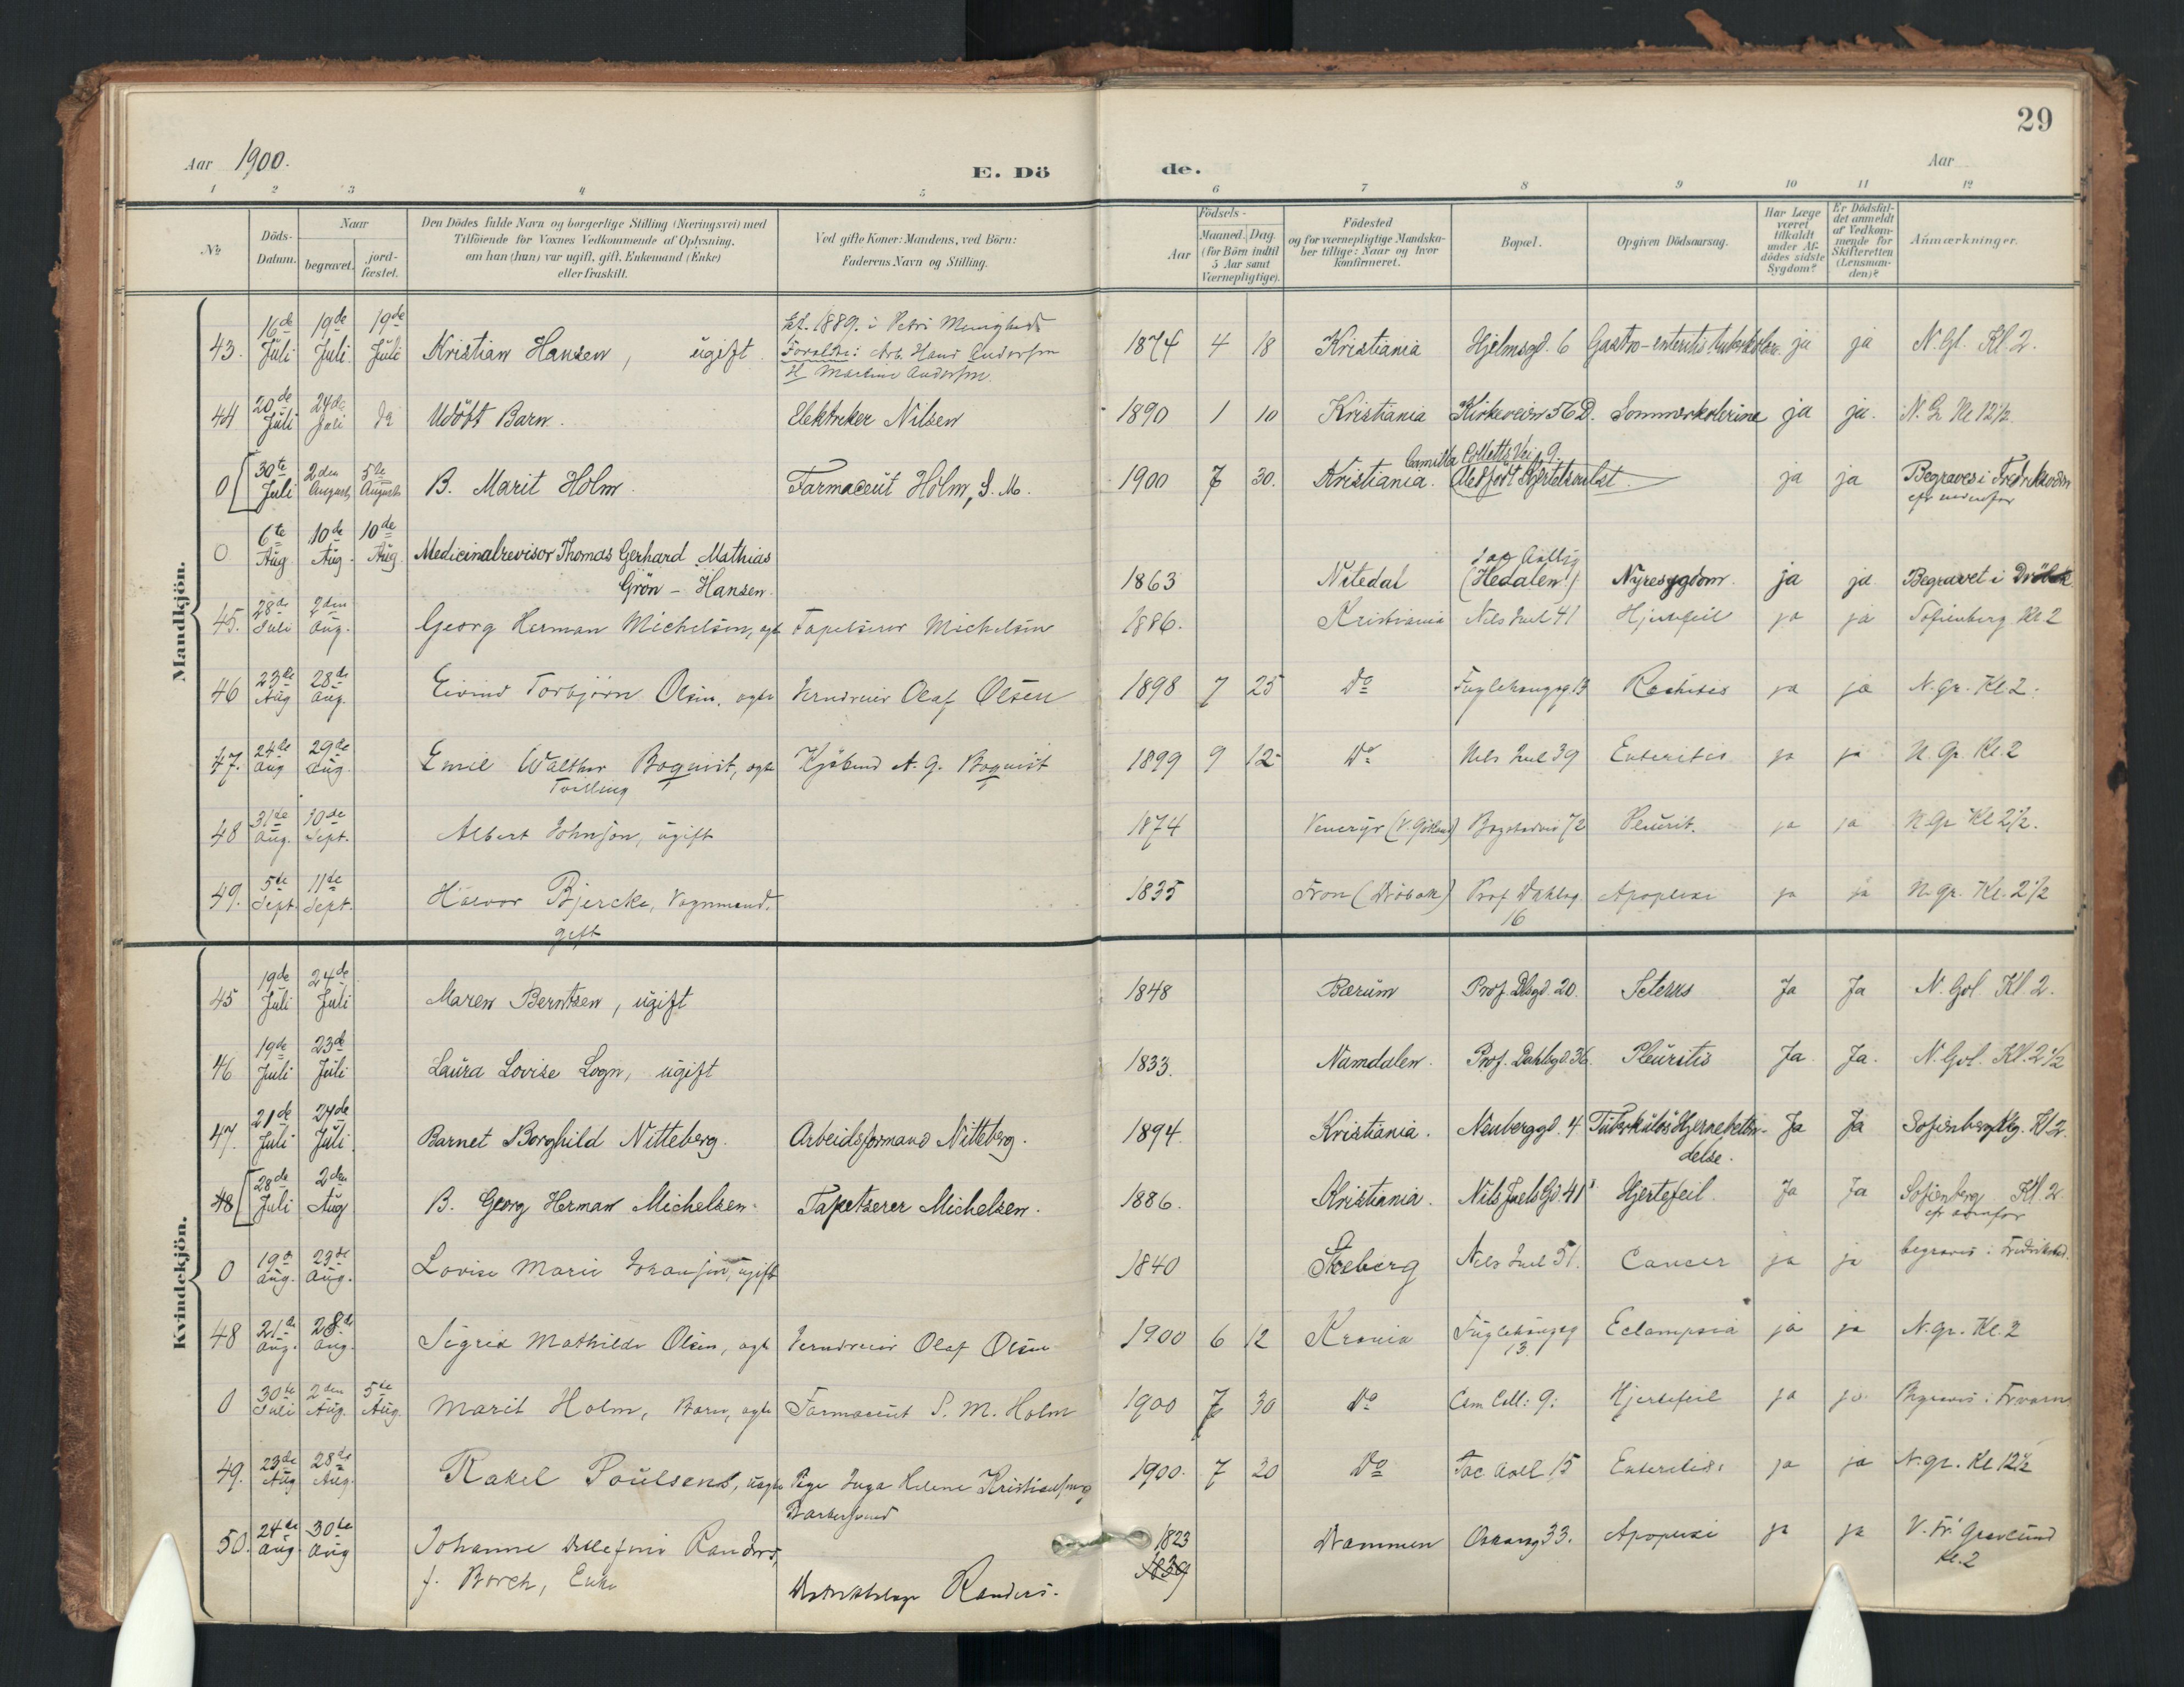 29
Aar 1900. E. Dö de. Aar
1 2 3 4 5 6 7 8 9 10 11 12
№ Döds-Datum. Naar begravet. jord-fæstet. Den Dödes fulde Navn og borgerlige Stilling (Næringsvei) med Tilföiende for Voxnes Vedkommende af Oplysning, om han (hun) var ugift, gift, Enkemand (Enke) eller fraskilt. Ved gifte Koner: Mandens, ved Börn: Faderens Navn og Stilling. Födsels- Aar Maaned. Dag. (for Börn indtil 5 Aar samt Værnepligtige). Födested og for værnepligtige Mandska-ber tillige: Naar og hvor konfirmeret. Bopæl. Opgiven Dödsaarsag. Har Læge været tilkaldt under Af-dödes sidste Sygdom? Er Dödsfal-det anmeldt af Vedkom-mende for Skifteretten (Lensman-den)? Anmærkninger.
Mandkjön.
43. 16de Juli 19de Juli 19de Juli Kristian Hansen, ugift. 1889. i Petri Menigheds Forældre: Arb. Hans Andersen Martine Andersen 1874 4 18 Kristiania Hjelmsgd. 6 Gastro-enteritis ja ja N. Gl. Kl 2.
44 20de Juli 24de Juli Udöbt Barn. Elektriker Nilsen 1890 1 10 Kristiania Kirkeveien 56 D. Sommerkolerine ja ja. N. G Kl 12½
0 30te Juli 2den August 5te August B. Marit Holm. Farmaceut Holm, S. M. 1900 7 30. Kristiania. Camilla Colletts Vei 9. Medfødt Hjertefeil ja ja Begraves i Fredriksværn
0 6te Aug. 10de Aug. 10de Aug. Medicinalrevisor Thomas Gerhard Mathias
Grön-Hansen. 1863 Nitedal (Hedalen!) Nyresygdom. ja ja Begravet i Dröbak
45. 28de Juli 2den Aug. Georg Herman Michelsen, egte Tapetserer Michelsen 1886. Kristiania Nils Juel 41 Hjertefeil ja ja Sofienberg Kl 2
46 23de Aug 28de Aug. Eivind Torbjörn Olsen, egte Olaf Olsen 1898 7 25 Do Fuglehaugsg 13 Rachitis ja ja N. Gr. Kl. 2.
47. 24de Aug 29de Aug. Emil Walther Boquist, egte Tvilling Kjöbmd A. G. Boquist 1899 9 12 Do Nils Juel 39 Enteritis ja ja N. Gr. Kl. 2
48 31de Aug. 10de Sept. Albert Johnson, ugift 1874 (V. Götland) Bogstadvei 72 Pleurit. ja ja N. Gr Kl 2½.
49. 5de Sept. 11de Sept. Halvor Bjercke, Vognmand. gift 1835 Fron (Dröbak) Prof Dahlsg 16 Apoplexi ja ja N. gr. Kl. 2½
Kvindekjön.
45 19de Juli 24de Juli Maren Berntzen, ugift 1848 Bærum Prof. Dlsgd. 20. Icterus Ja Ja N. Gvl. Kl 2.
46 19de Juli 23de Juli Laura Lovise Logn, ugift 1833. Namdalen. Prof. Dahlsgd. 36. Pleuritis Ja. Ja. N. Gvl. Kl. 2½
47. 21de Juli 24de Juli Barnet Borghild Nitteberg. Arbeidsformand Nitteberg. 1894. Kristiania. Neuberggd. 4 Tuberkulös Hjernebetæn-delse. Ja Ja Sofienberg Kl 2.
48 28de Juli 2den Aug B. Georg Herman Michelsen. Tapetserer Michelsen. 1886. Kristiania. Nils Juels Gd. 41 Hjertefeil. Ja Ja Sofienberg Kl. 2
0 19de Aug. 23de Aug. Lovise Marie Johansen, ugift 1840 Skeberg Nils Juel 51. Cancer ja ja begraves i Fredrikstad.
48 21de Aug. 28de Aug. Sigrid Mathilde Olsen, egte Olaf Olsen 1900 6 12 Krania Fuglehaugsg 13. Eclampsia ja ja N. gr. Kl. 2
0 30te Juli 2den Aug. 5te Aug. Marit Holm, Barn, egte Farmaceut S. M. Holm 1900 7 30 Do Cam Coll: 9. Hjertefeil ja ja Begraves i Frværn
49. 23de Aug 28de Aug. Rakel Poulsen, uegte Pige Inga Helene Kristiansen og 1900. 7 20 Do Jac Aall 15 Enteritis ja ja N. gr. Kl 12½
50. 24de Aug. 30te Aug Johanne Randers, f. Borch, Enke Distriktslæge Randers. 1823 1839 Drammen Oscarsg 33. Apoplexi ja ja V. Fr. Gravlund Kl. 2